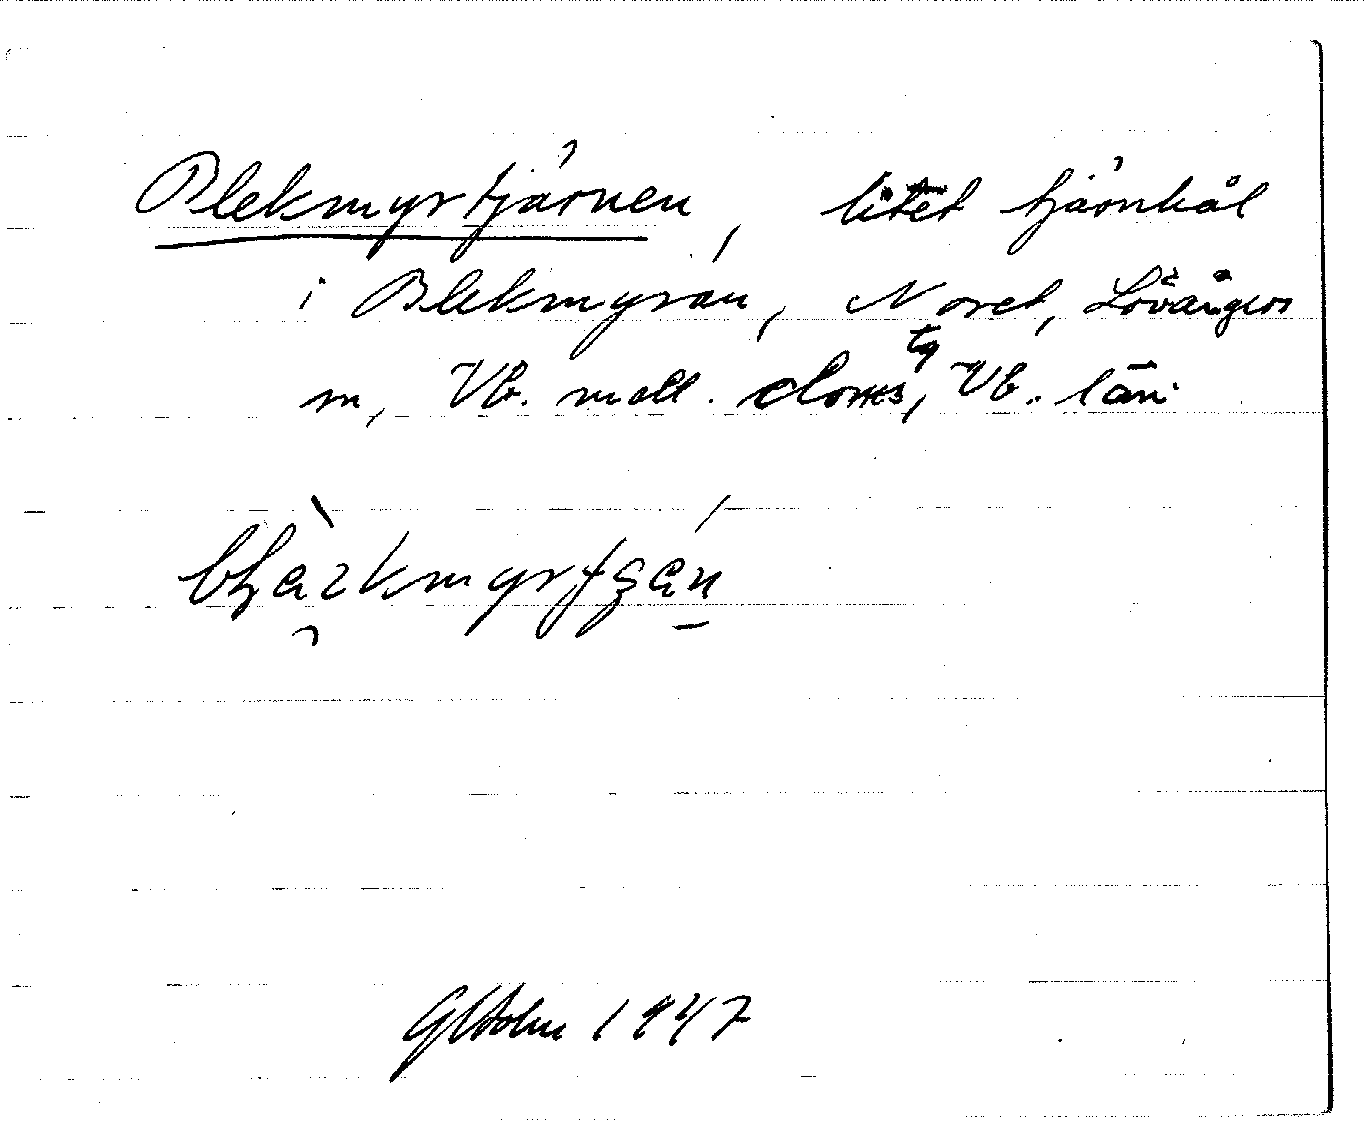 Blekmyrtjärnen, litet tjärnhål
i Blekmyran, Noret, Lövångers
sn, Vb. mell. domstg, Vb. län.
GHolm 1947